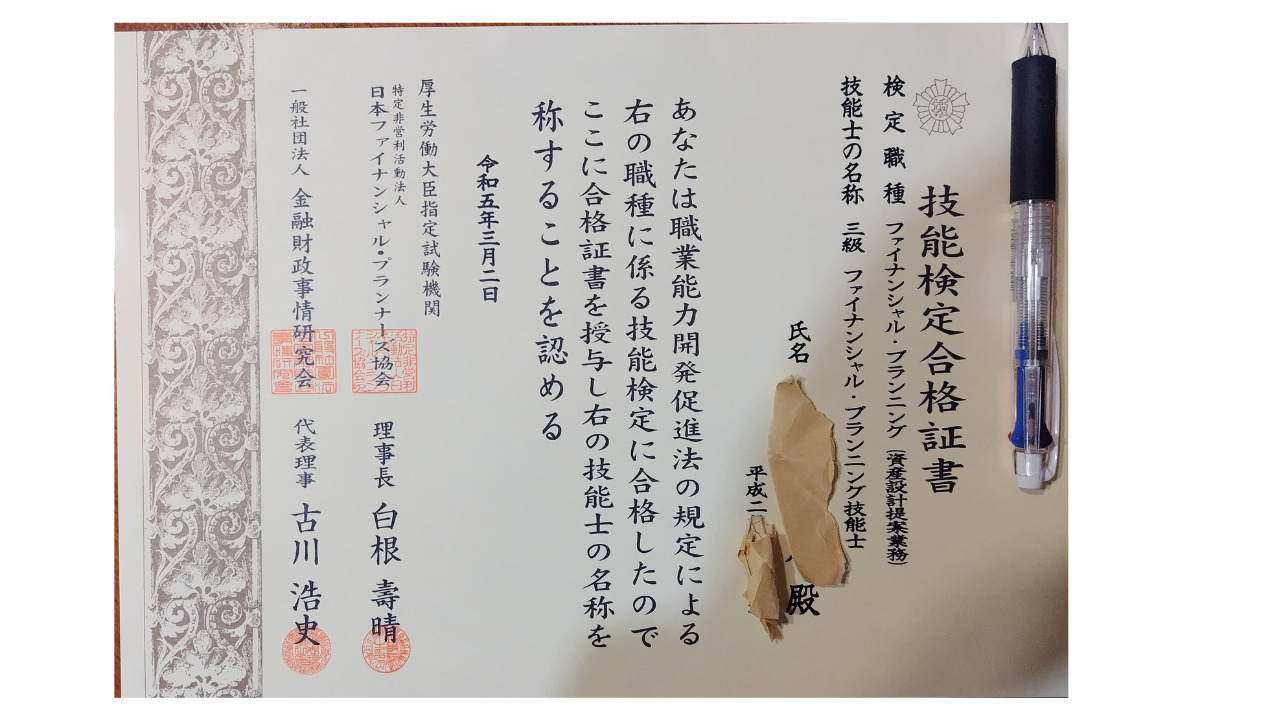 技能検定合格証書
検定職種 ファイナンシャル・プランニング(資産設計提案業務)
技能士の名称 三級 ファイナンシャル・プランニング技能士
氏名 殿
平成二
あなたは職業能力開発促進法の規定による
右の職種に係る技能検定に合格したので
ここに合格証書を授与し右の技能士の名称を
称することを認める
令和五年三月二日
厚生労働大臣指定試験機関
特定非営利活動法人
日本ファイナンシャル・プランナーズ協会 理事長 白根 壽晴
一般社団法人 金融財政事情研究会 代表理事 古川 浩史